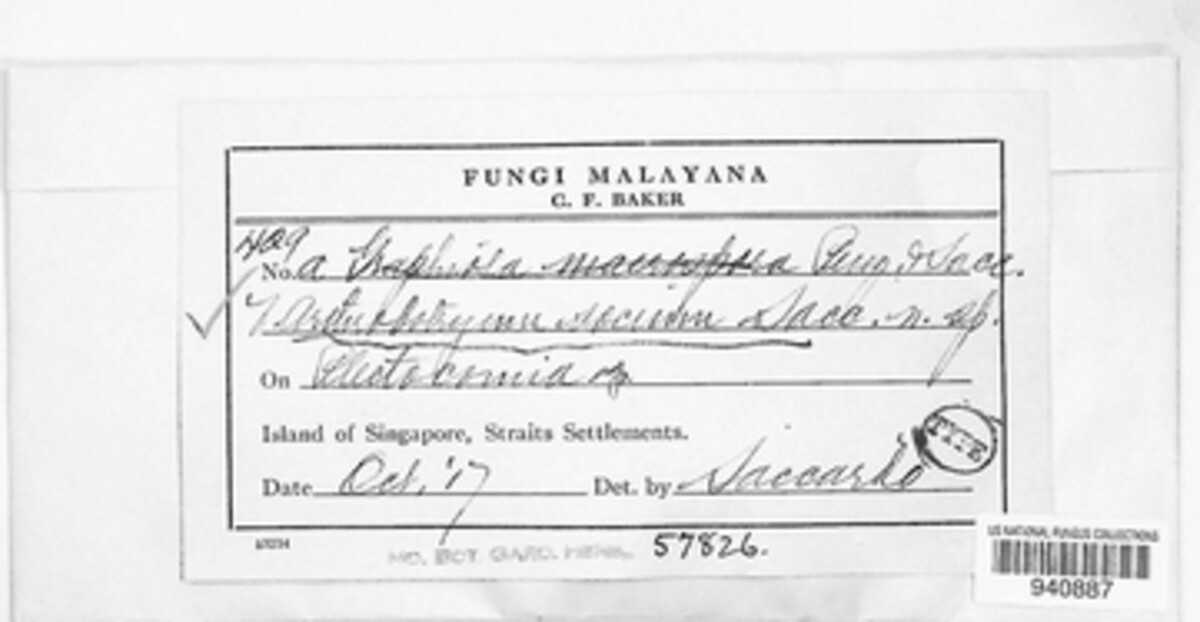 FUNGI MALAYANA
C. F. BAKER
409
No. a Graphiola macrospora Penz. & Sacc.
Arthrobotryum socium Sacc. n. sp.
On Plectocomia sp.
Island of Singapore, Straits Settlements.
TYPE
Date Oct. '17 Det. by Saccardo
MO. BOT. GARD. HERB. 57826.
US NATIONAL FUNGUS COLLECTIONS
940887